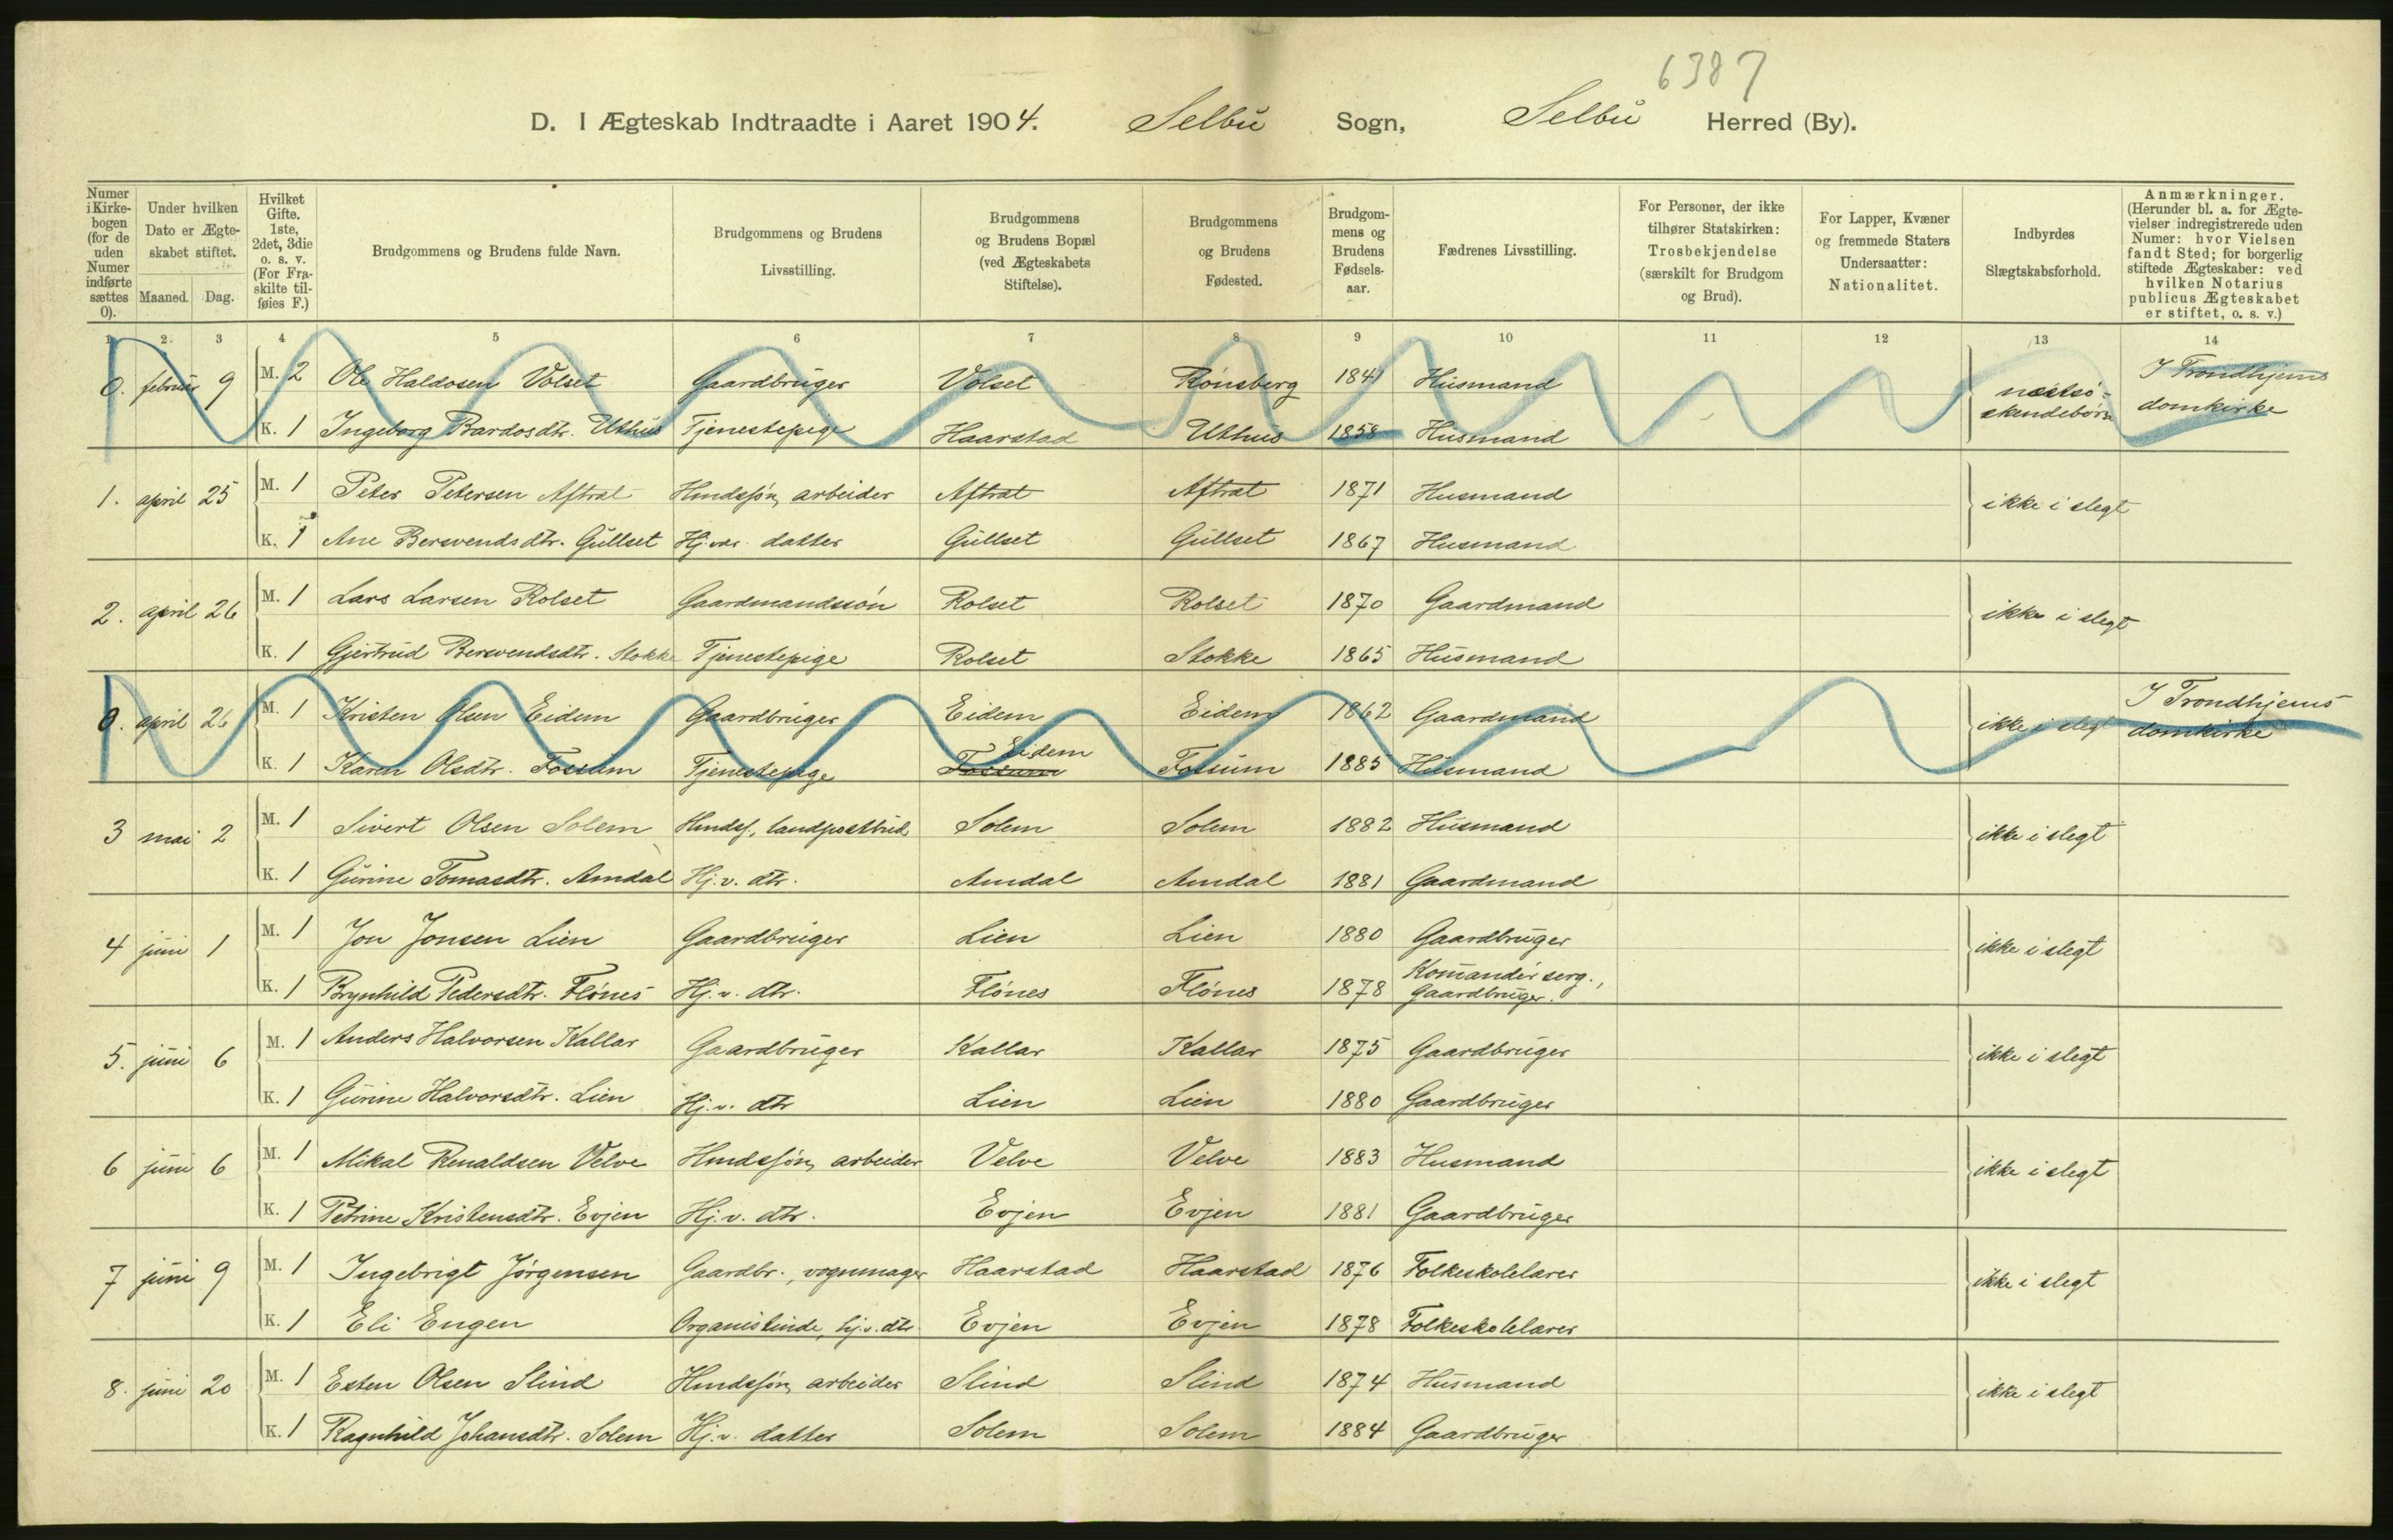 6387
D. I Ægteskab Indtraadte i Aaret 1904. Selbu Sogn, Selbu Herred (By).
Numer i Kirkebogen (for de uden Numer indførte sættes 0).
Under hvilken Dato er Ægteskabet stiftet. Maaned. Dag.
Hvilket Gifte. 1ste, 2det, 3die o. s. v. (For Fraskilte tilføies F.)
Brudgommens og Brudens fulde Navn.
Brudgommens og Brudens Livsstilling.
Brudgommens og Brudens Bopæl (ved Ægteskabets Stiftelse).
Brudgommens og Brudens Fødested.
Brudgommens og Brudens Fødselsaar.
Fædrenes Livsstilling.
For Personer, der ikke tilhører Statskirken: Trosbekjendelse (særskilt for Brudgom og Brud).
For Lapper, Kvæner og fremmede Staters Undersaatter: Nationalitet.
Indbyrdes Slægtskabsforhold.
Anmærkninger. (Herunder bl. a. for Ægtevielser indregistrerede uden Numer: hvor Vielsen fandt Sted; for borgerlig stiftede Ægteskaber: ved hvilken Notarius publicus Ægteskabet er stiftet, o. s. v.)
1 2 3 4 5 6 7 8 9 10 11 12 13 14
0. februar 9 M. 2 Ole Haldosen Volset Gaardbruger Volset Rönsberg 1841 Husmand næstsöskendebörn I Trondhjems domkirke
K. 1 Ingeborg Bardosdtr. Uthus Tjenestepige Haarstad Uthus 1858 Husmand
1. april 25 M. 1 Peter Petersen Aftrat Hmdssön, arbeider Aftrat Aftrat 1871 Husmand ikke i slegt
K. 1 Ane Bersvendsdtr. Gullset Hj.vær. datter Gullset Gullset 1867 Husmand
2. april 26 M. 1 Lars Larsen Rolset Gaardmandssön Rolset Rolset 1870 Gaardmand ikke i slegt
K. 1 Gjertrud Bersvendsdtr. Stokke Tjenestepige Rolset Stokke 1865 Husmand
0. april 26 M. 1 Kristen Olsen Eidem Gaardbruger Eidem Eidem 1862 Gaardmand ikke i slegt I Trondhjems domkirke
K. 1 Karen Olsdtr. Fossum Tjenestepige Fossum Eidem Fossum 1885 Husmand
3 mai 2 M. 1 Sivert Olsen Solem Hmdss, landpostbud Solem Solem 1882 Husmand ikke i slegt
K. 1 Gurine Tomasdtr. Amdal Hj. v. dtr. Amdal Amdal 1881 Gaardmand
4 juni 1 M. 1 Jon Jonsen Lien Gaardbruger Lien Lien 1880 Gaardbruger ikke i slegt
K. 1 Brynhild Pedersdtr. Flönes Hj. v. dtr. Flönes Flönes 1878 Komandér serg., Gaardbruger.
5. juni 6 M. 1 Anders Halvorsen Kallar Gaardbruger Kallar Kallar 1875 Gaardbruger ikke i slegt
K. 1 Gurine Halvorsdtr. Lien Hj. v. dtr Lien Lien 1880 Gaardbruger
6 juni 6 M. 1 Mikal Renaldsen Velve Hmdssön, arbeider Velve Velve 1883 Husmand ikke i slegt
K. 1 Petrine Kristensdtr. Evjen Hj. v. dtr. Evjen Evjen 1881 Gaardbruger
7 juni 9 M. 1 Ingebrigt Jørgensen Gaardbr., vognmager Haarstad Haarstad 1876 Folkeskolelærer ikke i slegt
K. 1 Eli Engen Organistinde, hj. v. dtr. Evjen Evjen 1878 Folkeskolelærer
8. juni 20 M. 1 Esten Olsen Slind Hmdssön, arbeider Slind Slind 1874 Husmand ikke i slegt
K. 1 Ragnhild Johansdtr. Solem Hj. v. datter Solem Solem 1884 Gaardbruger